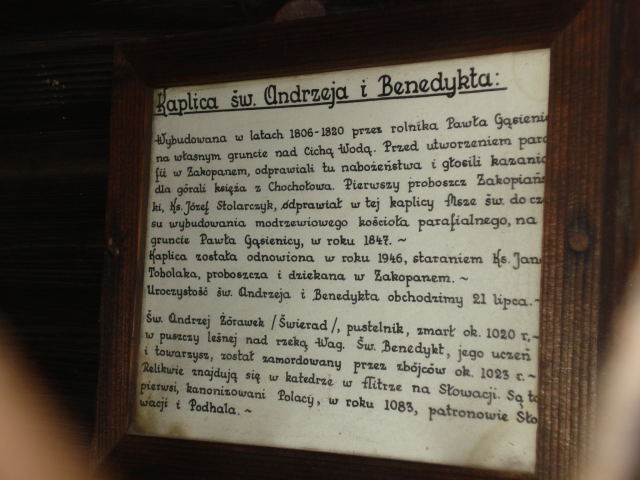 Kaplica św. Andrzeja i Benedykta:
Wybudowana w latach 1806-1820 przez rolnika Pawła Gąsieni
na własnym gruncie nad Cichą Wodą. Przed utworzeniem para
fii w Zakopanem, odprawiali tu nabożeństwa i głosili kazania
dla górali księża z Chochołowa. Pierwszy proboszcz Zakopiańs
ki, Ks. Józef Stolarczyk, odprawiał w tej kaplicy Msze św. do cza
su wybudowania modrzewiowego kościoła parafialnego, na
gruncie Pawła Gąsienicy, w roku 1847. ~
Kaplica została odnowiona w roku 1946, staraniem Ks. Jana
Tobolaka, proboszcza i dziekana w Zakopanem. ~
Uroczystość św. Andrzeja i Benedykta obchodzimy 21 lipca. ~
Św. Andrzej Żórawek /Świerad/, pustelnik, zmarł ok. 1020 r, ~
w puszczy leśnej nad rzeką Wag. Św. Benedykt, jego uczeń
i towarzysz, został zamordowany przez zbójców ok. 1023 r. ~
Relikwie znajdują się w katedrze w Nitrze na Słowacji. Są to
pierwsi, kanonizowani Polacy, w roku 1083, patronowie Sło
wacji i Podhala. ~